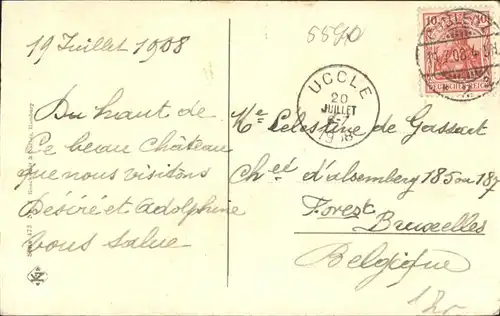 19 Juillet 1908
5570
10 10
UCCLE
20
JUILLET
6-7
1908
Du haut de
ce beau château
que nous visitons
Désiré et Adolphine
vous salue
Me Celestine de Gassart
Cheé d'alsemberg 185 ou 187
Forest
Bruxelles
Belgique